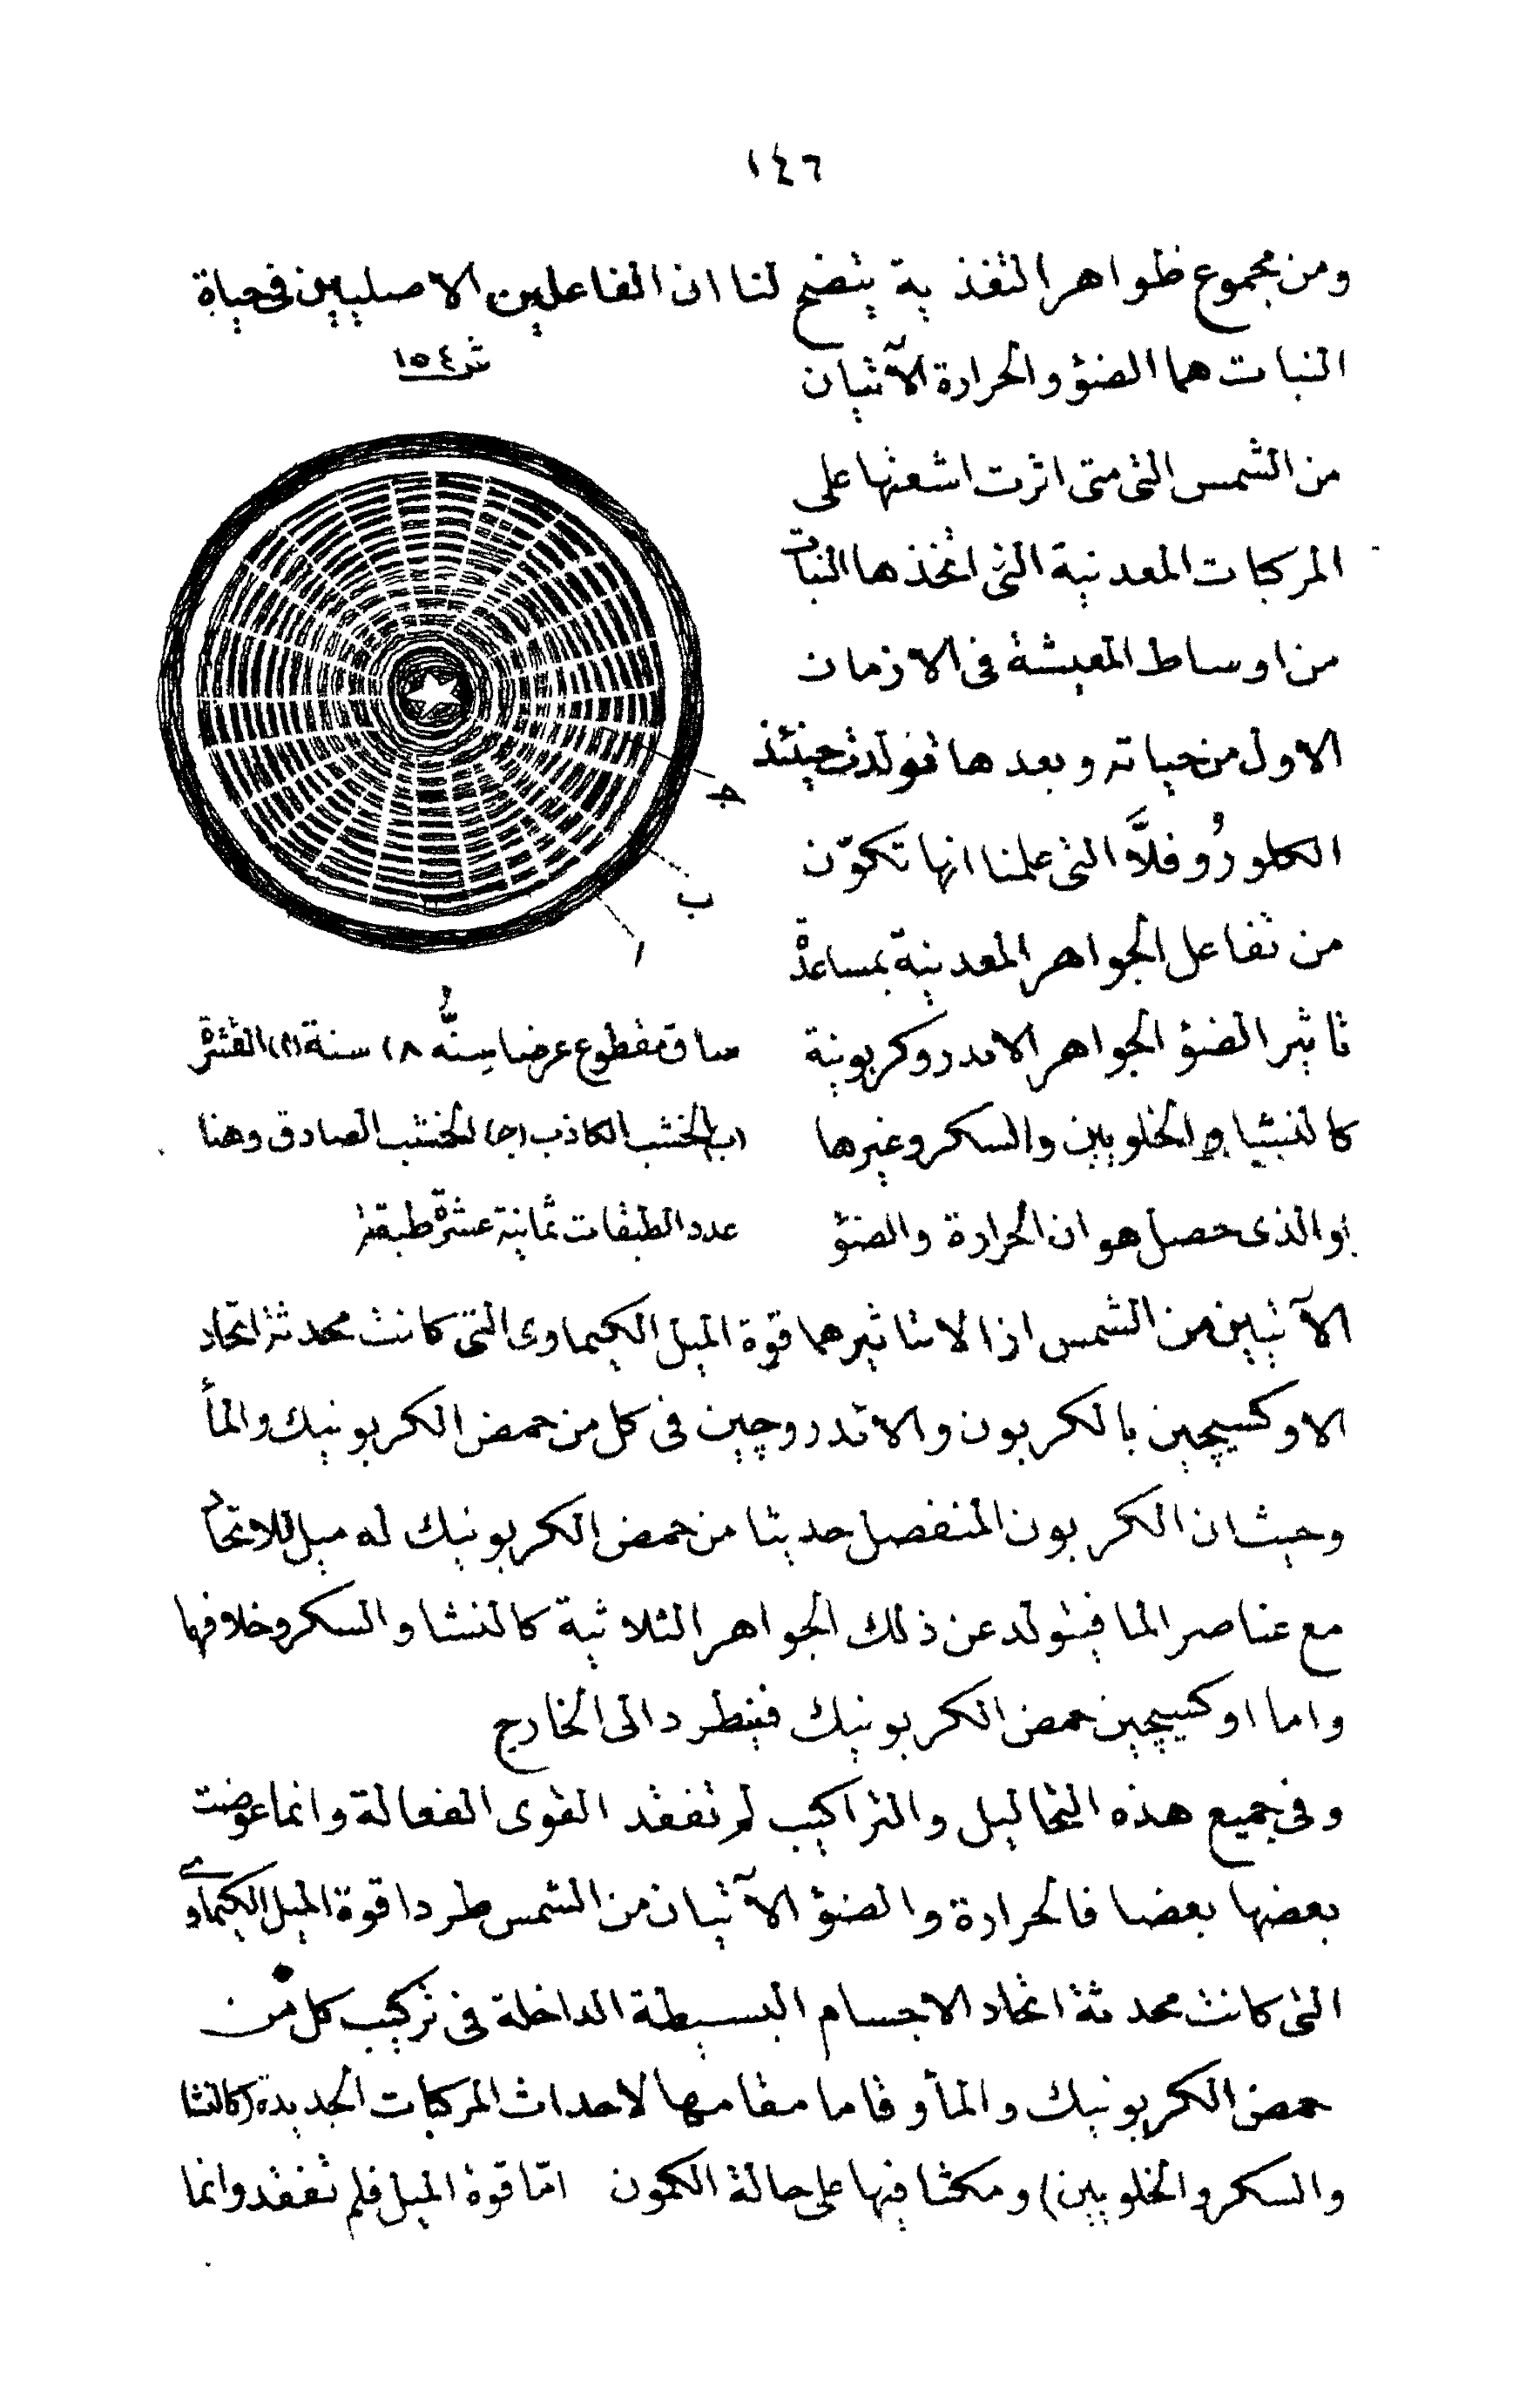 ١٤٦
ومن مجموع ظواهر التغذية يتضح لنا ان الفاعلين الاصليين فى حياة
النبات هما الضؤ والحرارة الآتيان
من الشمس التى متى اثرت اشعتها على
المركبات المعدنية التى اتخذها النبات
من اوساط المعيشة فى الازمان
الاول من حياته وبعدها تولدت حينئذ
الكلورُوفلاَّ التى علمنا انها تكوّن
من تفاعل الجواهر المعدنية بمساعدة
تاثير الضؤ الجواهر الادروكربونية
كالنشا والخلويين والسكر وغيرها
والذى حصل هو ان الحرارة والضؤ
ش ١٥٤
جـ
ب
ا
ساق مقطوع عرضا سِنُّه ١٨ سنة (ا) القشرة
(ب) الخشب الكاذب (جـ) الخشب الصادق وهنا
عدد الطبقات ثمانية عشرة طبقة
الآتيين من الشمس ازالا بتاثيرهما قوة الميل الكيماوى التى كانت محدثة اتحاد
الاوكسيچين بالكربون والادروچين فى كل من حمض الكربونيك والمأ
وحيث ان الكربون المنفصل حديثا من حمض الكربونيك له ميل للاتحاد
مع عناصر الما فيتولد عن ذلك الجواهر الثلاثية كالنشا والسكر وخلافها
واما اوكسيچين حمض الكربونيك فينطرد الى الخارج
وفى جميع هذه التحاليل والتراكيب لم تفقد القوى الفعالة وانما عوضت
بعضها بعضا فالحرارة والضؤ الآتيان من الشمس طردا قوة الميل الكيماوى
التى كانت محدثة اتحاد الاجسام البسيطة الداخلة فى تركيب كل من
حمض الكربونيك والمأ وقاما مقامها لاحداث المركبات الجديدة (كالنشا
والسكر والخلويين) ومكثا فيها على حالة الكمون امّا قوة الميل فلم تفقد وانما